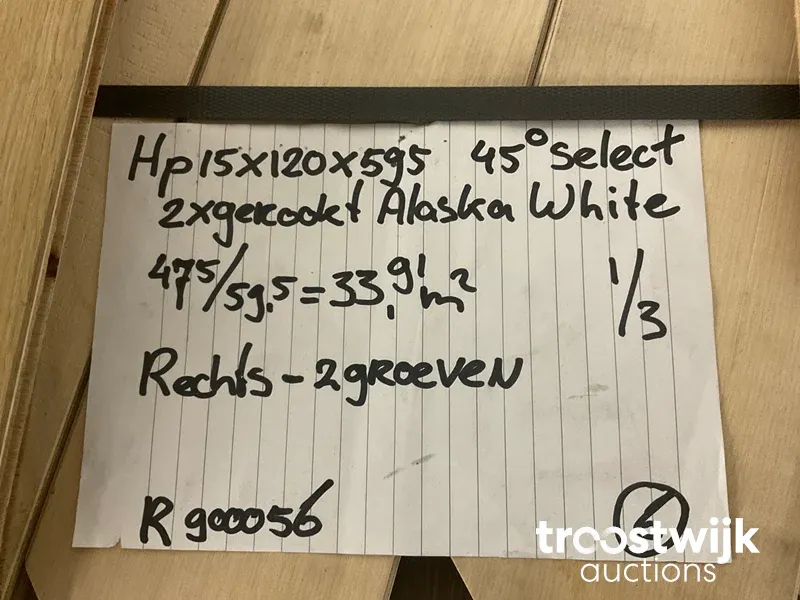 Hp 15x120x595 45° select
2xgerookt Alaska White
475/59.5=33,91 m² 1/3
Rechts - 2 groeven
R 900056
troostwijk
auctions